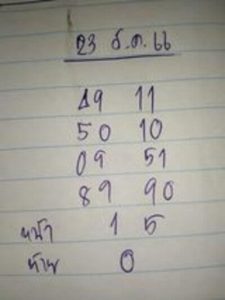 23 ธ.ค. 66
49 11
50 10
09 51
89 90
หน้า 1 5
ท้าย 0